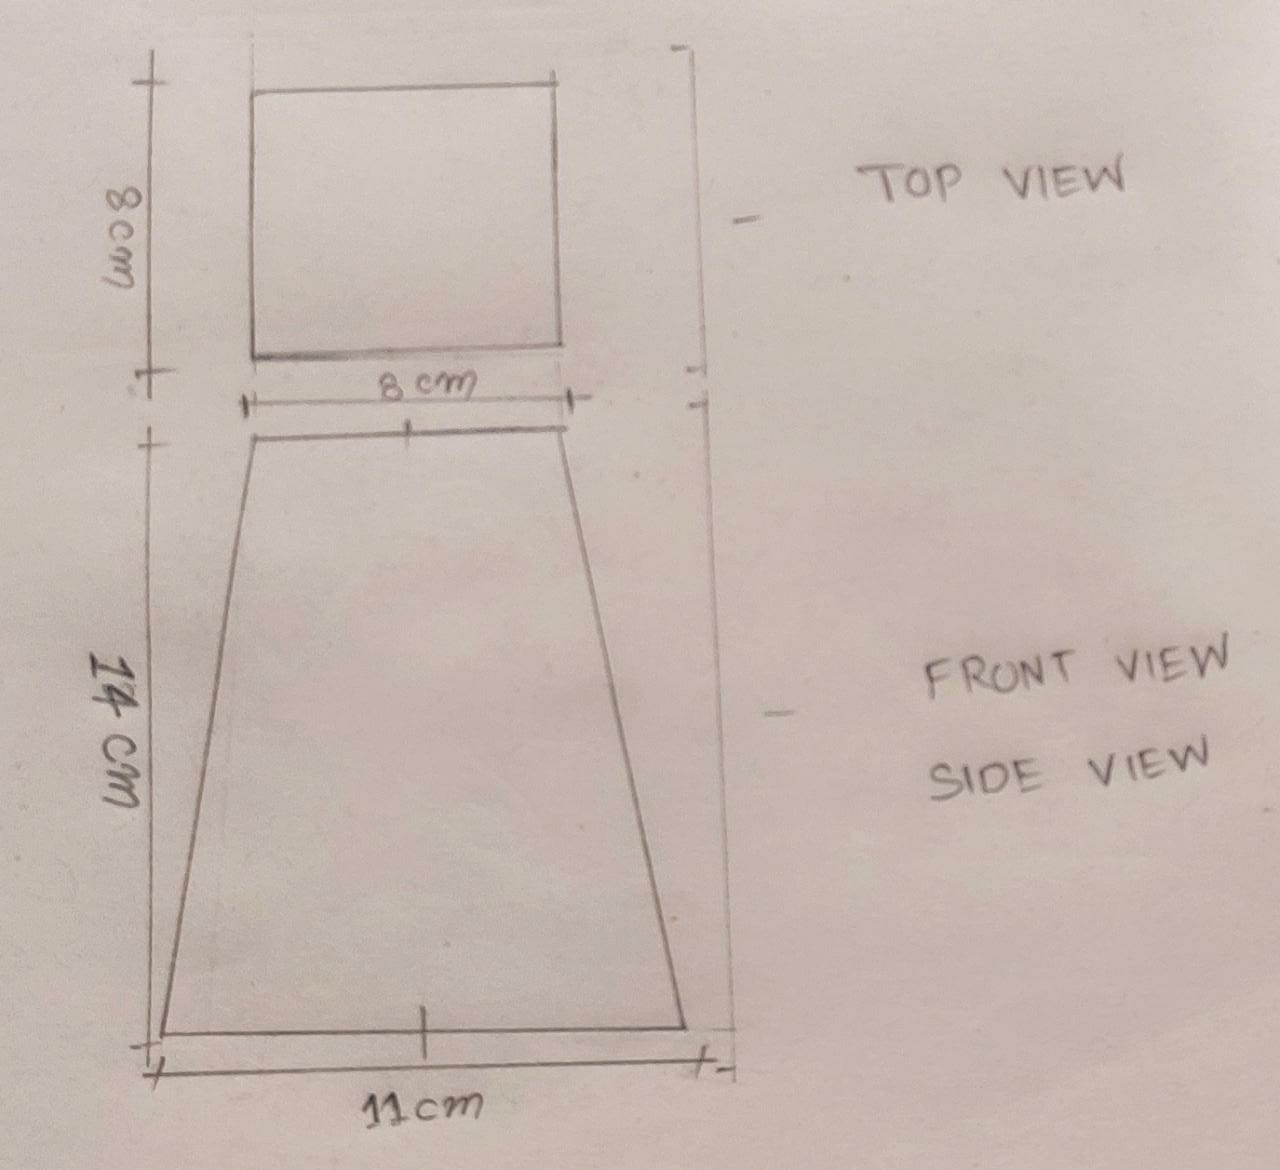 8cm
TOP VIEW
8 cm
14 cm
FRONT VIEW
SIDE VIEW
11cm